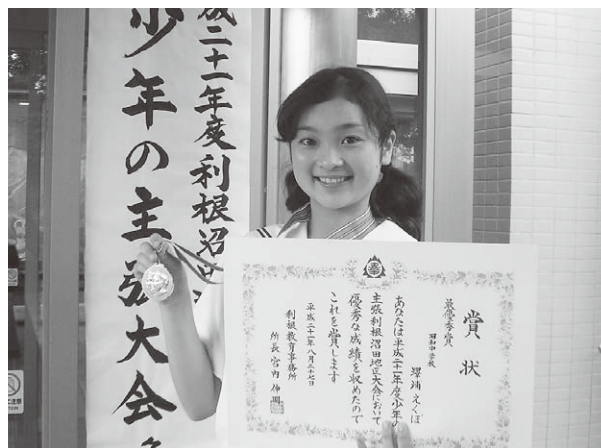 成二十一年度利根沼田
少年の主張大会
賞状
最優秀賞
昭和中学校
澤浦えくぼ
あなたは平成二十一年度少年の
主張利根沼田地区大会において
優秀な成績を収めたので
これを賞します
平成二十一年八月二十七日
利根教育事務所
所長 宮内伸明